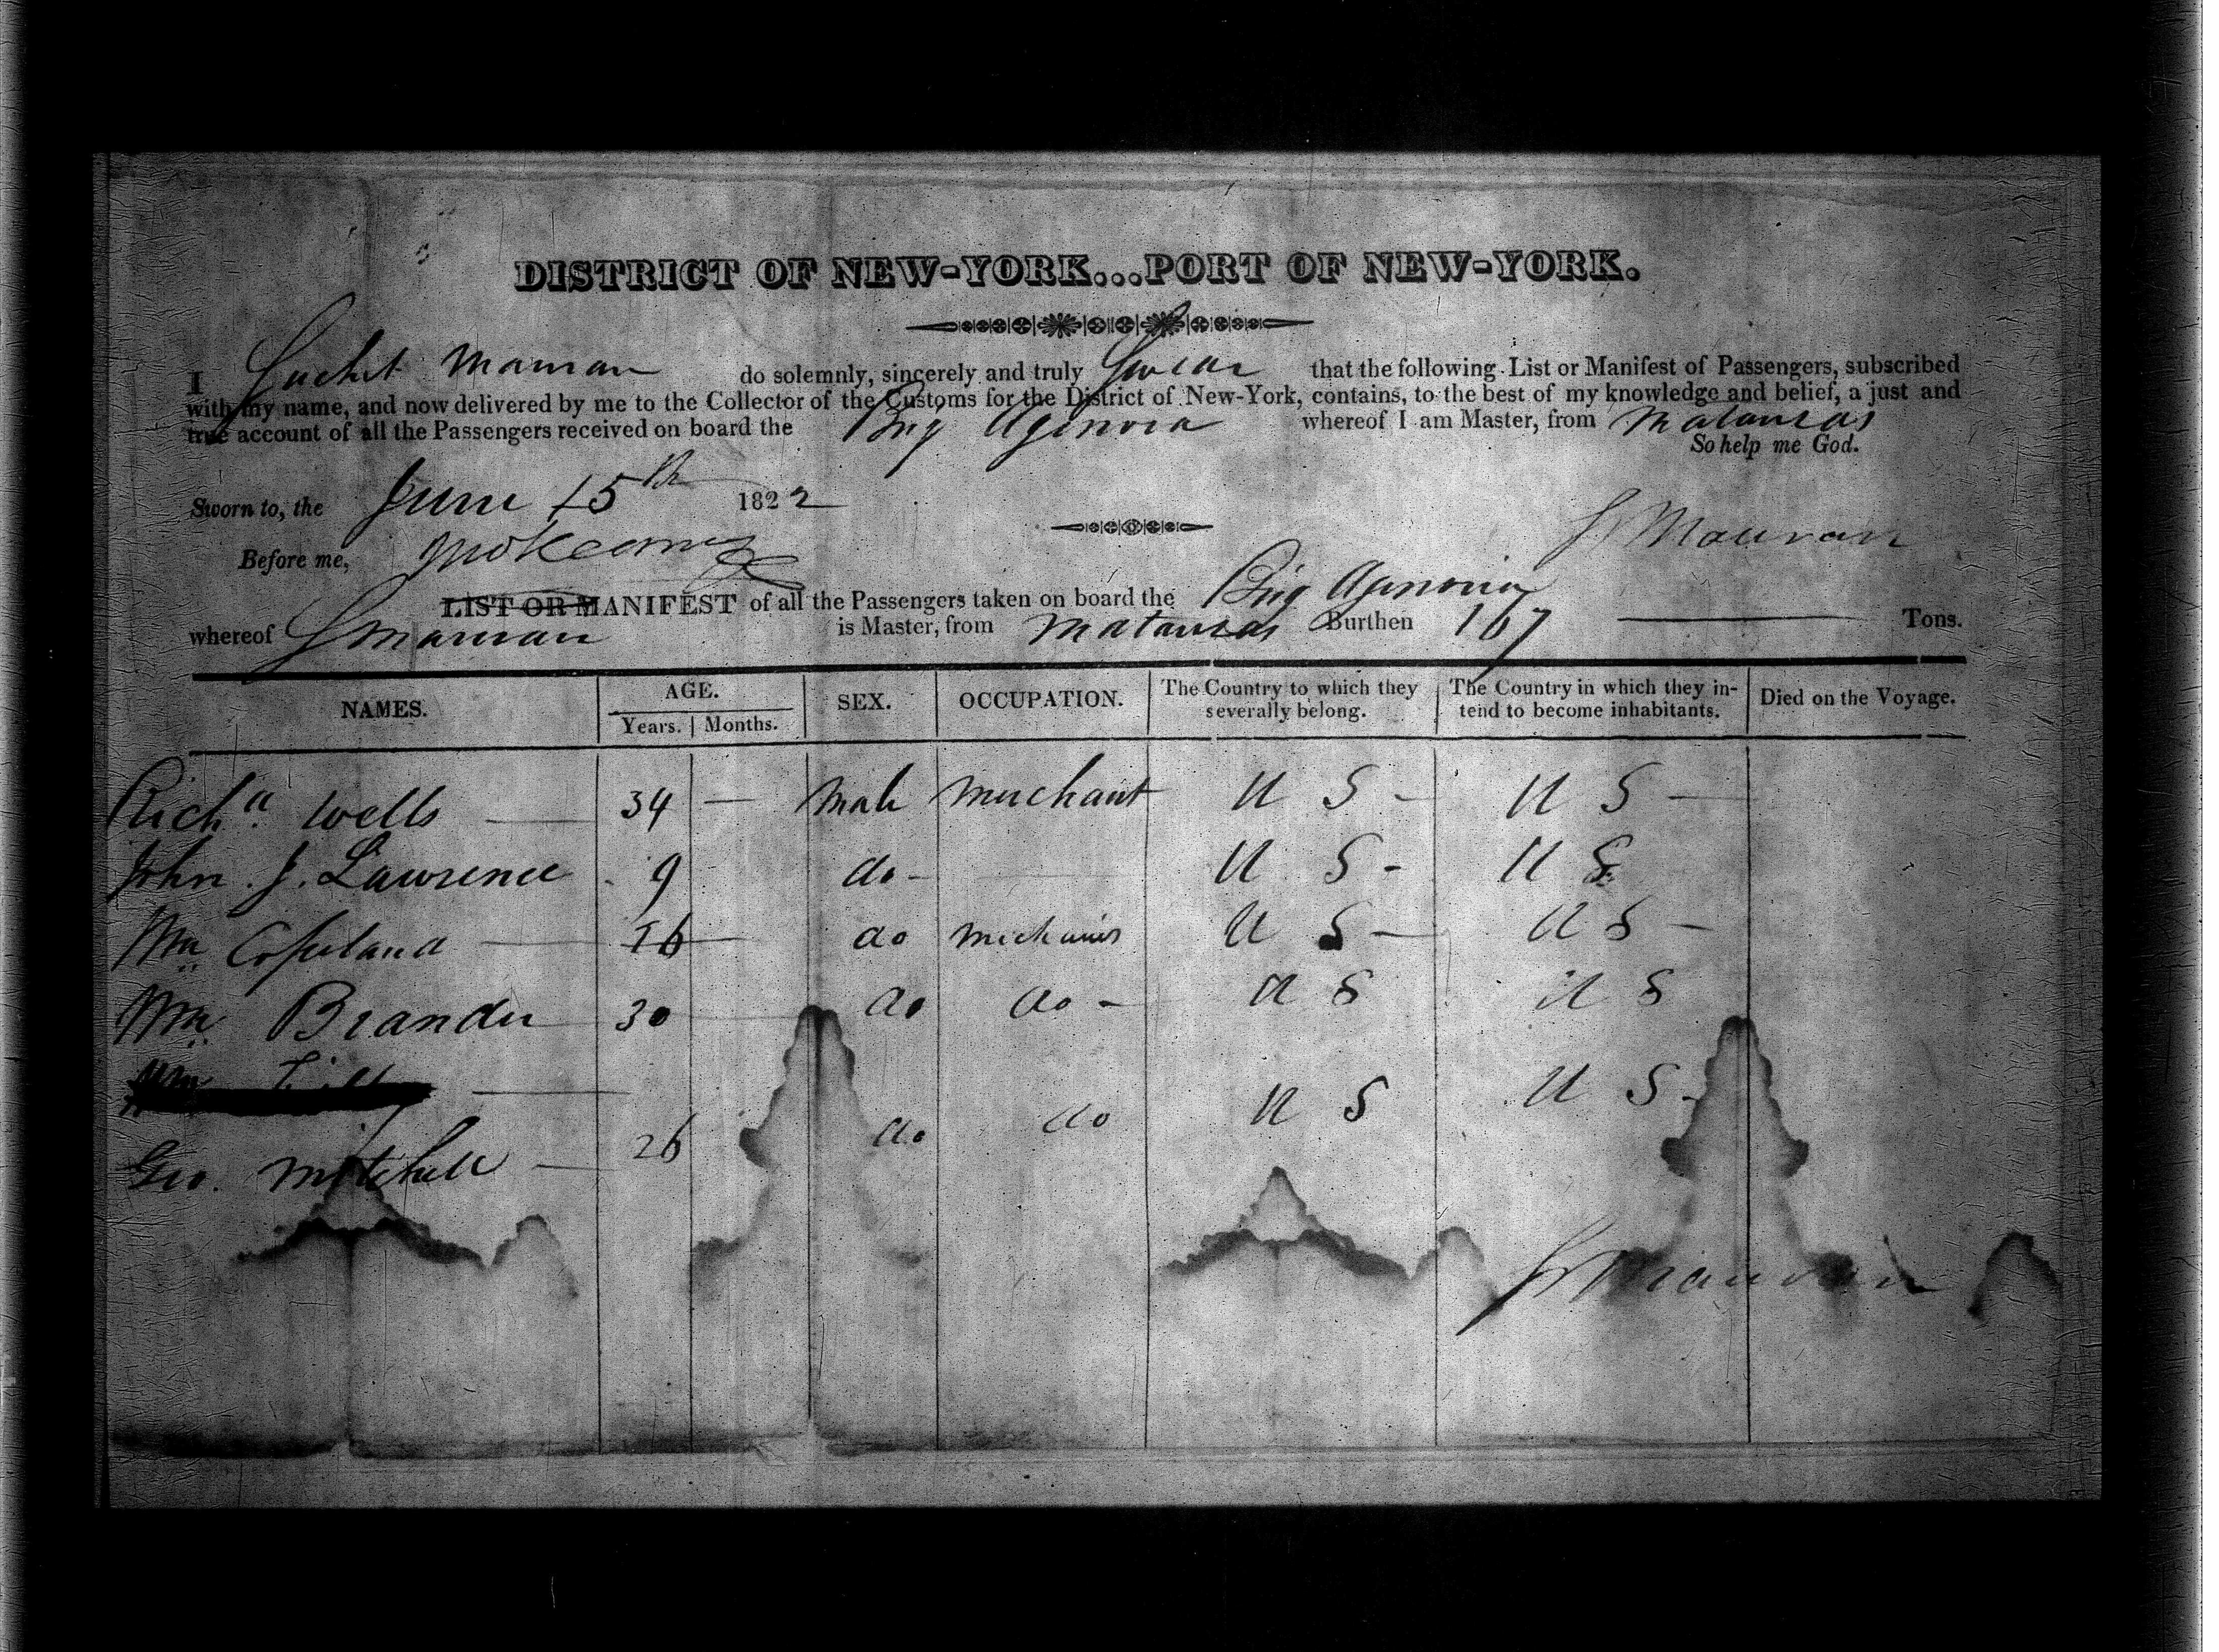 DISTRICT OF NEW-YORK...PORT OF NEW-YORK.
I Suchet Mauran do solemnly, sincerely and truly Swear that the following List or Manifest of Passengers, subscribed
with my name, and now delivered by me to the Collector of the Customs for the District of New-York, contains, to the best of my knowledge and belief, a just and
true account of all the Passengers received on board the Brig Agenoria whereof I am Master, from Matanzas
So help me God.
Sworn to, the June 15th 1822
S Mauran
Before me,
LIST OR MANIFEST of all the Passengers taken on board the Brig Agenoria
whereof S Mauran is Master, from Matanzas Burthen 167 Tons.
NAMES. AGE. SEX. OCCUPATION. The Country to which they severally belong. The Country in which they intend to become inhabitants. Died on the Voyage.
Years. Months.
Richd. Wells — 34 — Male Merchant U S - U S -
John. J. Lawrence 9 do - — U S - U S
Wm Copeland — 16 — do Mechanic U S - U S -
Wm Brander 30 — do do - U S U S
Geo. Mitchell — 26 do do U S U S -
S Mauran